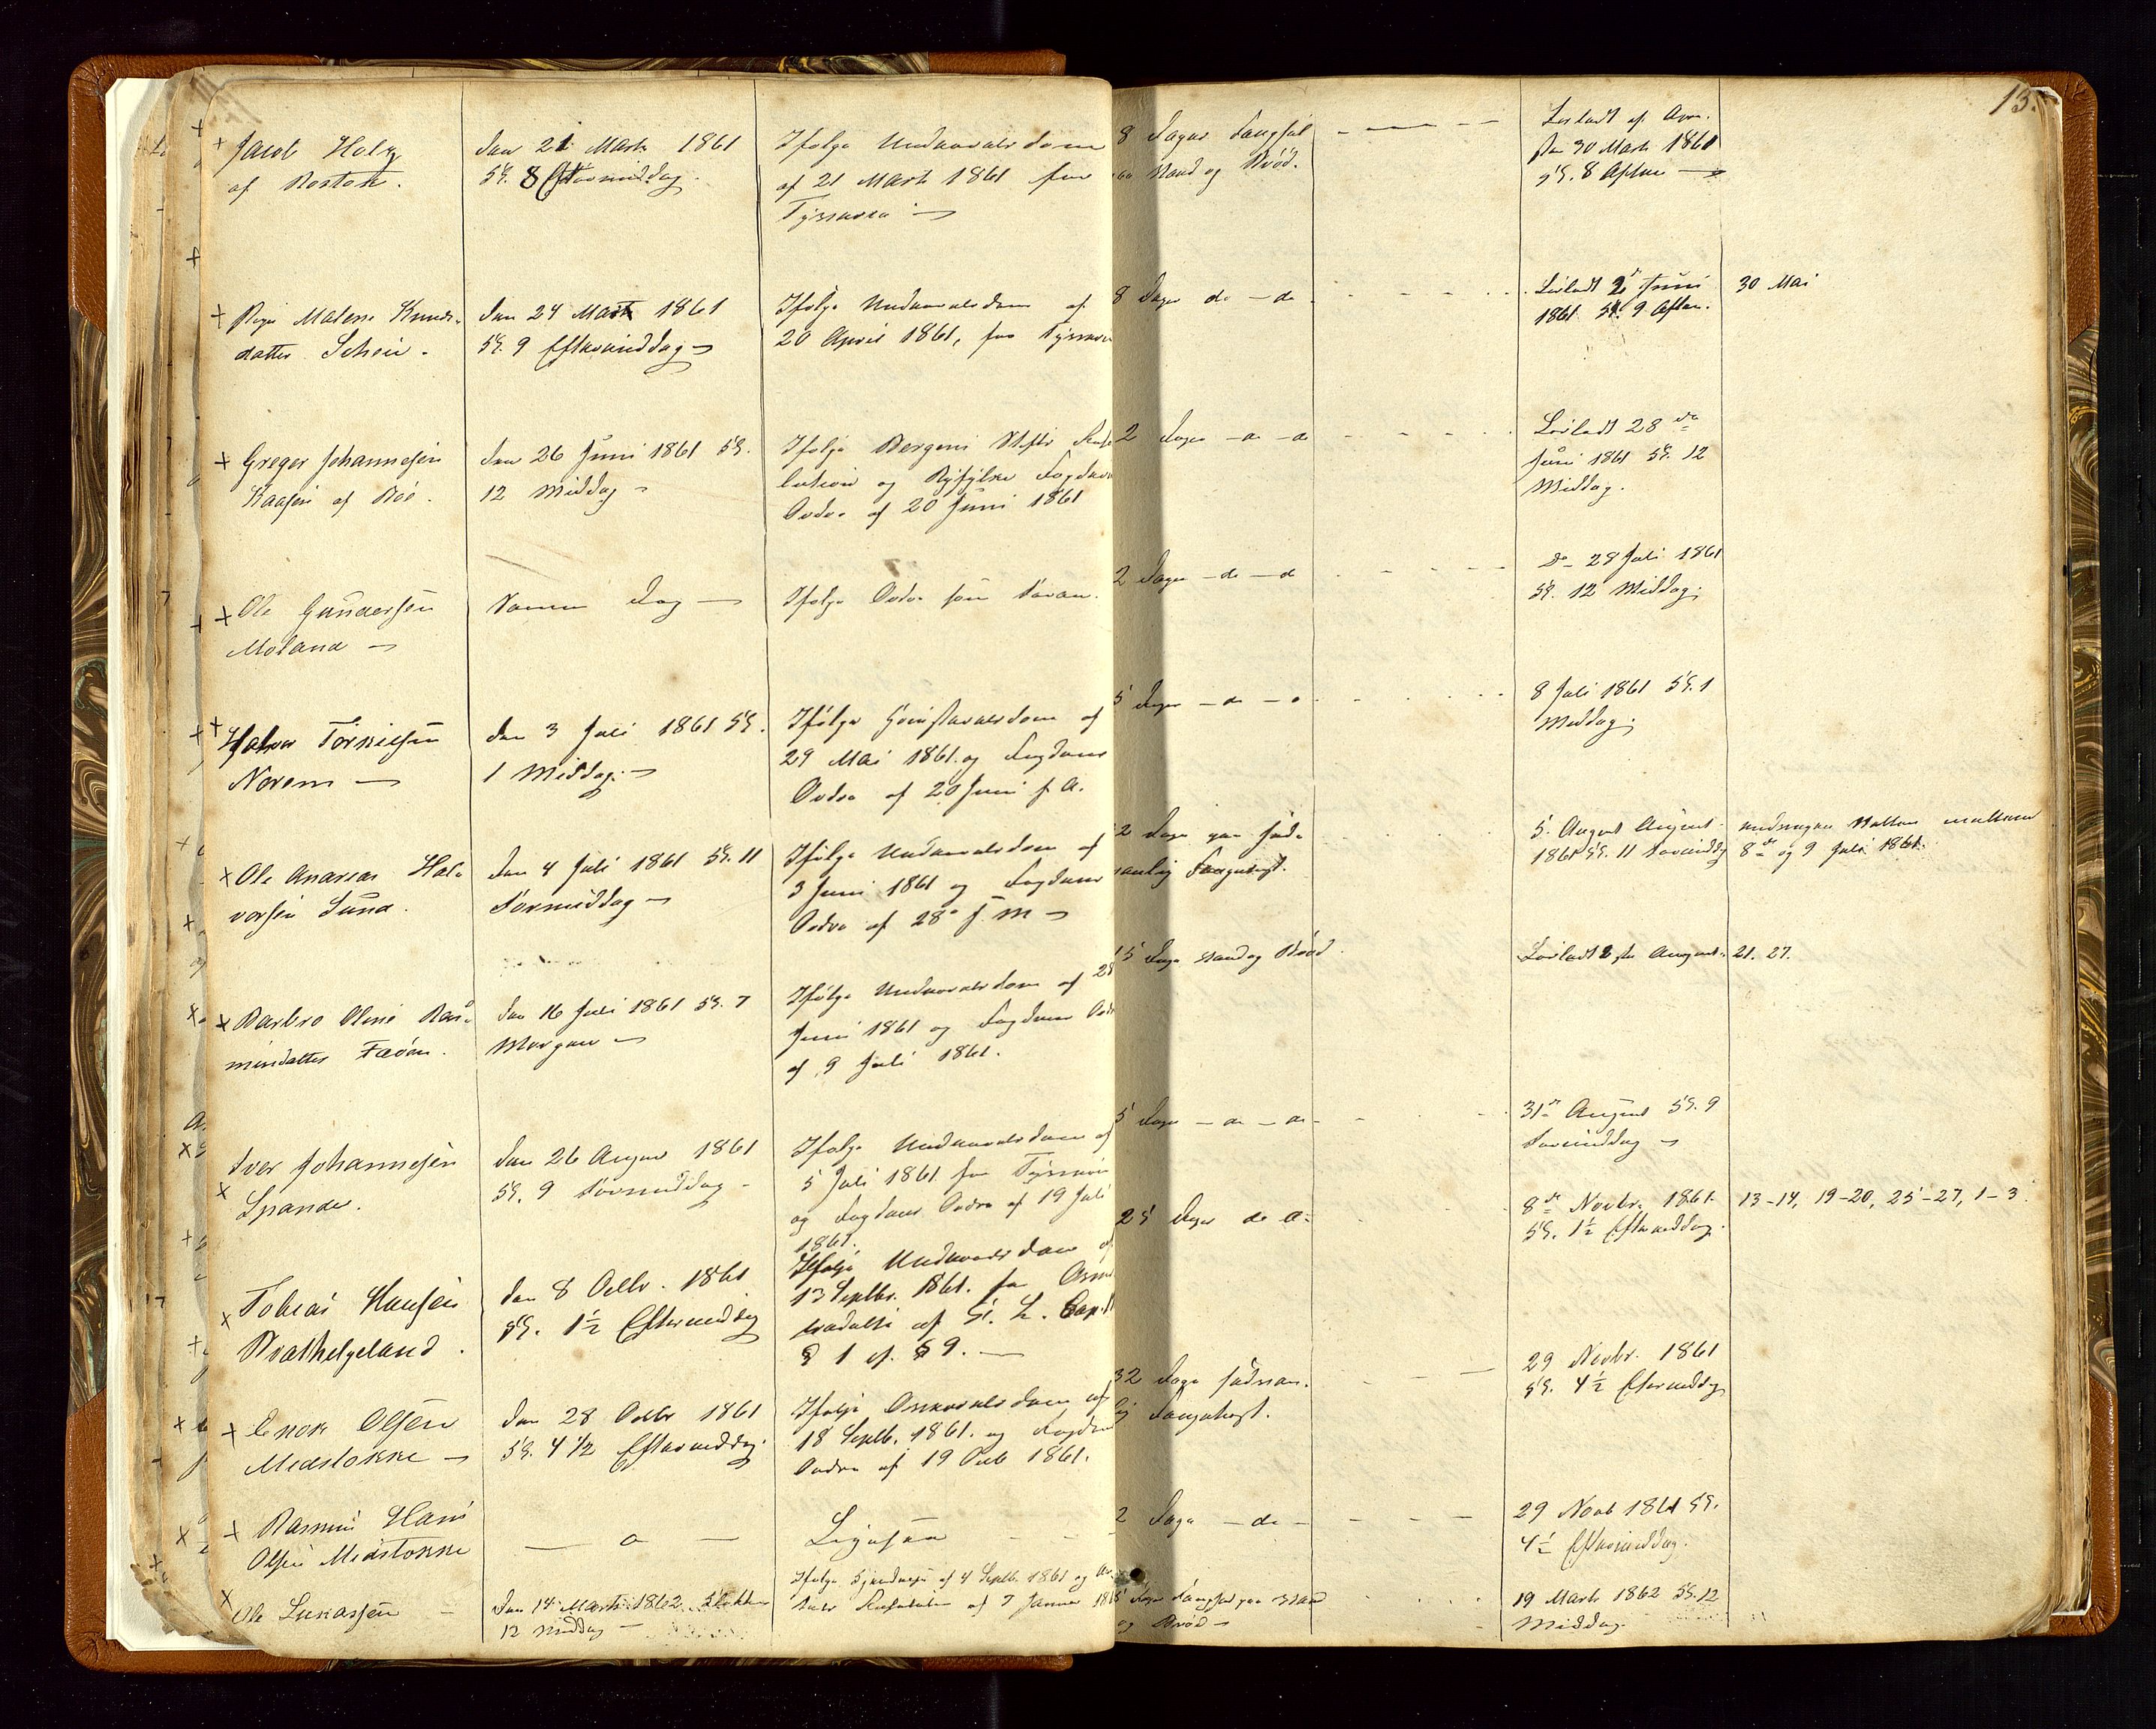 13.
Jacob Holz
af Rostok.
den 21 Marts 1861
Kl. 8 Eftermiddag.
Ifølge Underretsdom
af 21 Marts 1861 for
Tyveri
8 Dages Fængsel
Vand og Brød.
Løsladt af Arr.
den 30 Marts 1861
Kl. 8 Aften
Malene Knuds-
datter
den 24 1861
Kl. 9 Eftermiddag
Ifølge Underretsdom af
20 April 1861, for Tyveri
8 Dage do - do
Løsladt 2 Juni
1861 Kl. 9 Aften.
30 Mai
Greger Johannesen
af
den 26 Juni 1861 Kl.
12 Middag
Ifølge Bergens Stifts
og Ryfylke Fogderi
Ordre af 20 Juni 1861
2 Dage do - do
Løsladt 28 de
Juni 1861 Kl. 12
Middag.
Ole Gundersen
Moland
Samme Dag
Ifølge Ordre som foran.
2 Dage - do - do
do - 28 Juli 1861
Kl. 12 Middag.
Halvor Torkielsen
Norem
den 3 Juli 1861 Kl.
1 Middag.
Ifølge Høiesteretsdom af
29 Mai 1861 og Fogdens
Ordre af 20 Juni s. A.
5 Dage - do - o
8 Juli 1861 Kl. 1
Middag.
Ole Andreas Hal-
vorsen Sund.
den 4 Juli 1861 Kl. 11
Formiddag
Ifølge Underretsdom af
3 Juni 1861 og Fogdens
Ordre af 28 s. M
2 Dage paa sæd-
vanlig Fangekost.
5. August August
1861 Kl. 11 Formiddag
mellem
8 de og 9 Juli 1861.
Barbro Oline Ras-
musdatter Fæøen.
den 16 Juli 1861 Kl. 7
Morgen
Ifølge Underretsdom af 28
Juni 1861 og Fogdens Ordr
af 9 Juli 1861.
15 Dage Vand og Brød
Løsladt 2 den August
21. 27.
Iver Johannesen
Spande.
den 26 August 1861
Kl. 9 Formiddag
Ifølge Underretsdom af
5 Juli 1861 for Tyveri
og Fogdens Ordre af 19 Juli
1861.
5 Dage - do - do
31 te August Kl. 9
Formiddag
Tobias Hansen
Bratthelgeland.
den 8 Octbr. 1861
Kl. 1½ Eftermiddag
Ifølge Underretsdom af
13 Septbr. 1861. for
af Cr. L. Cap.
§ 1 cf. § 9.
25 Dage do do
8 de Novbr. 1861
Kl. 1½ Eftermiddag.
13-14, 19-20, 25-27, 1-3.
Enok Olsen
Medstokke
den 28 Octbr 1861
Kl. 4½ Eftermiddag.
Ifølge Overretsdom af
18 Septb. 1861. og Fogdens
Ordre af 19 Octb 1861.
32 Dage sædvan-
lig Fangekost.
29 Novbr. 1861
Kl. 4½ Eftermiddag
Rasmus Hans
Olsen Medstokke
o
Ligesaa
2 Dage - do -
29 Novb 1861 Kl.
4½ Eftermiddag.
Ole Lukassen
den 14 Marts 1862 Klokken
12 Middag
Ifølge af 4 Septb. 1861 og
Resolution af 7 Januar
5 Dages Fængsel paa Vand
og Brød
19 Marts 1862 Kl. 12
Middag.